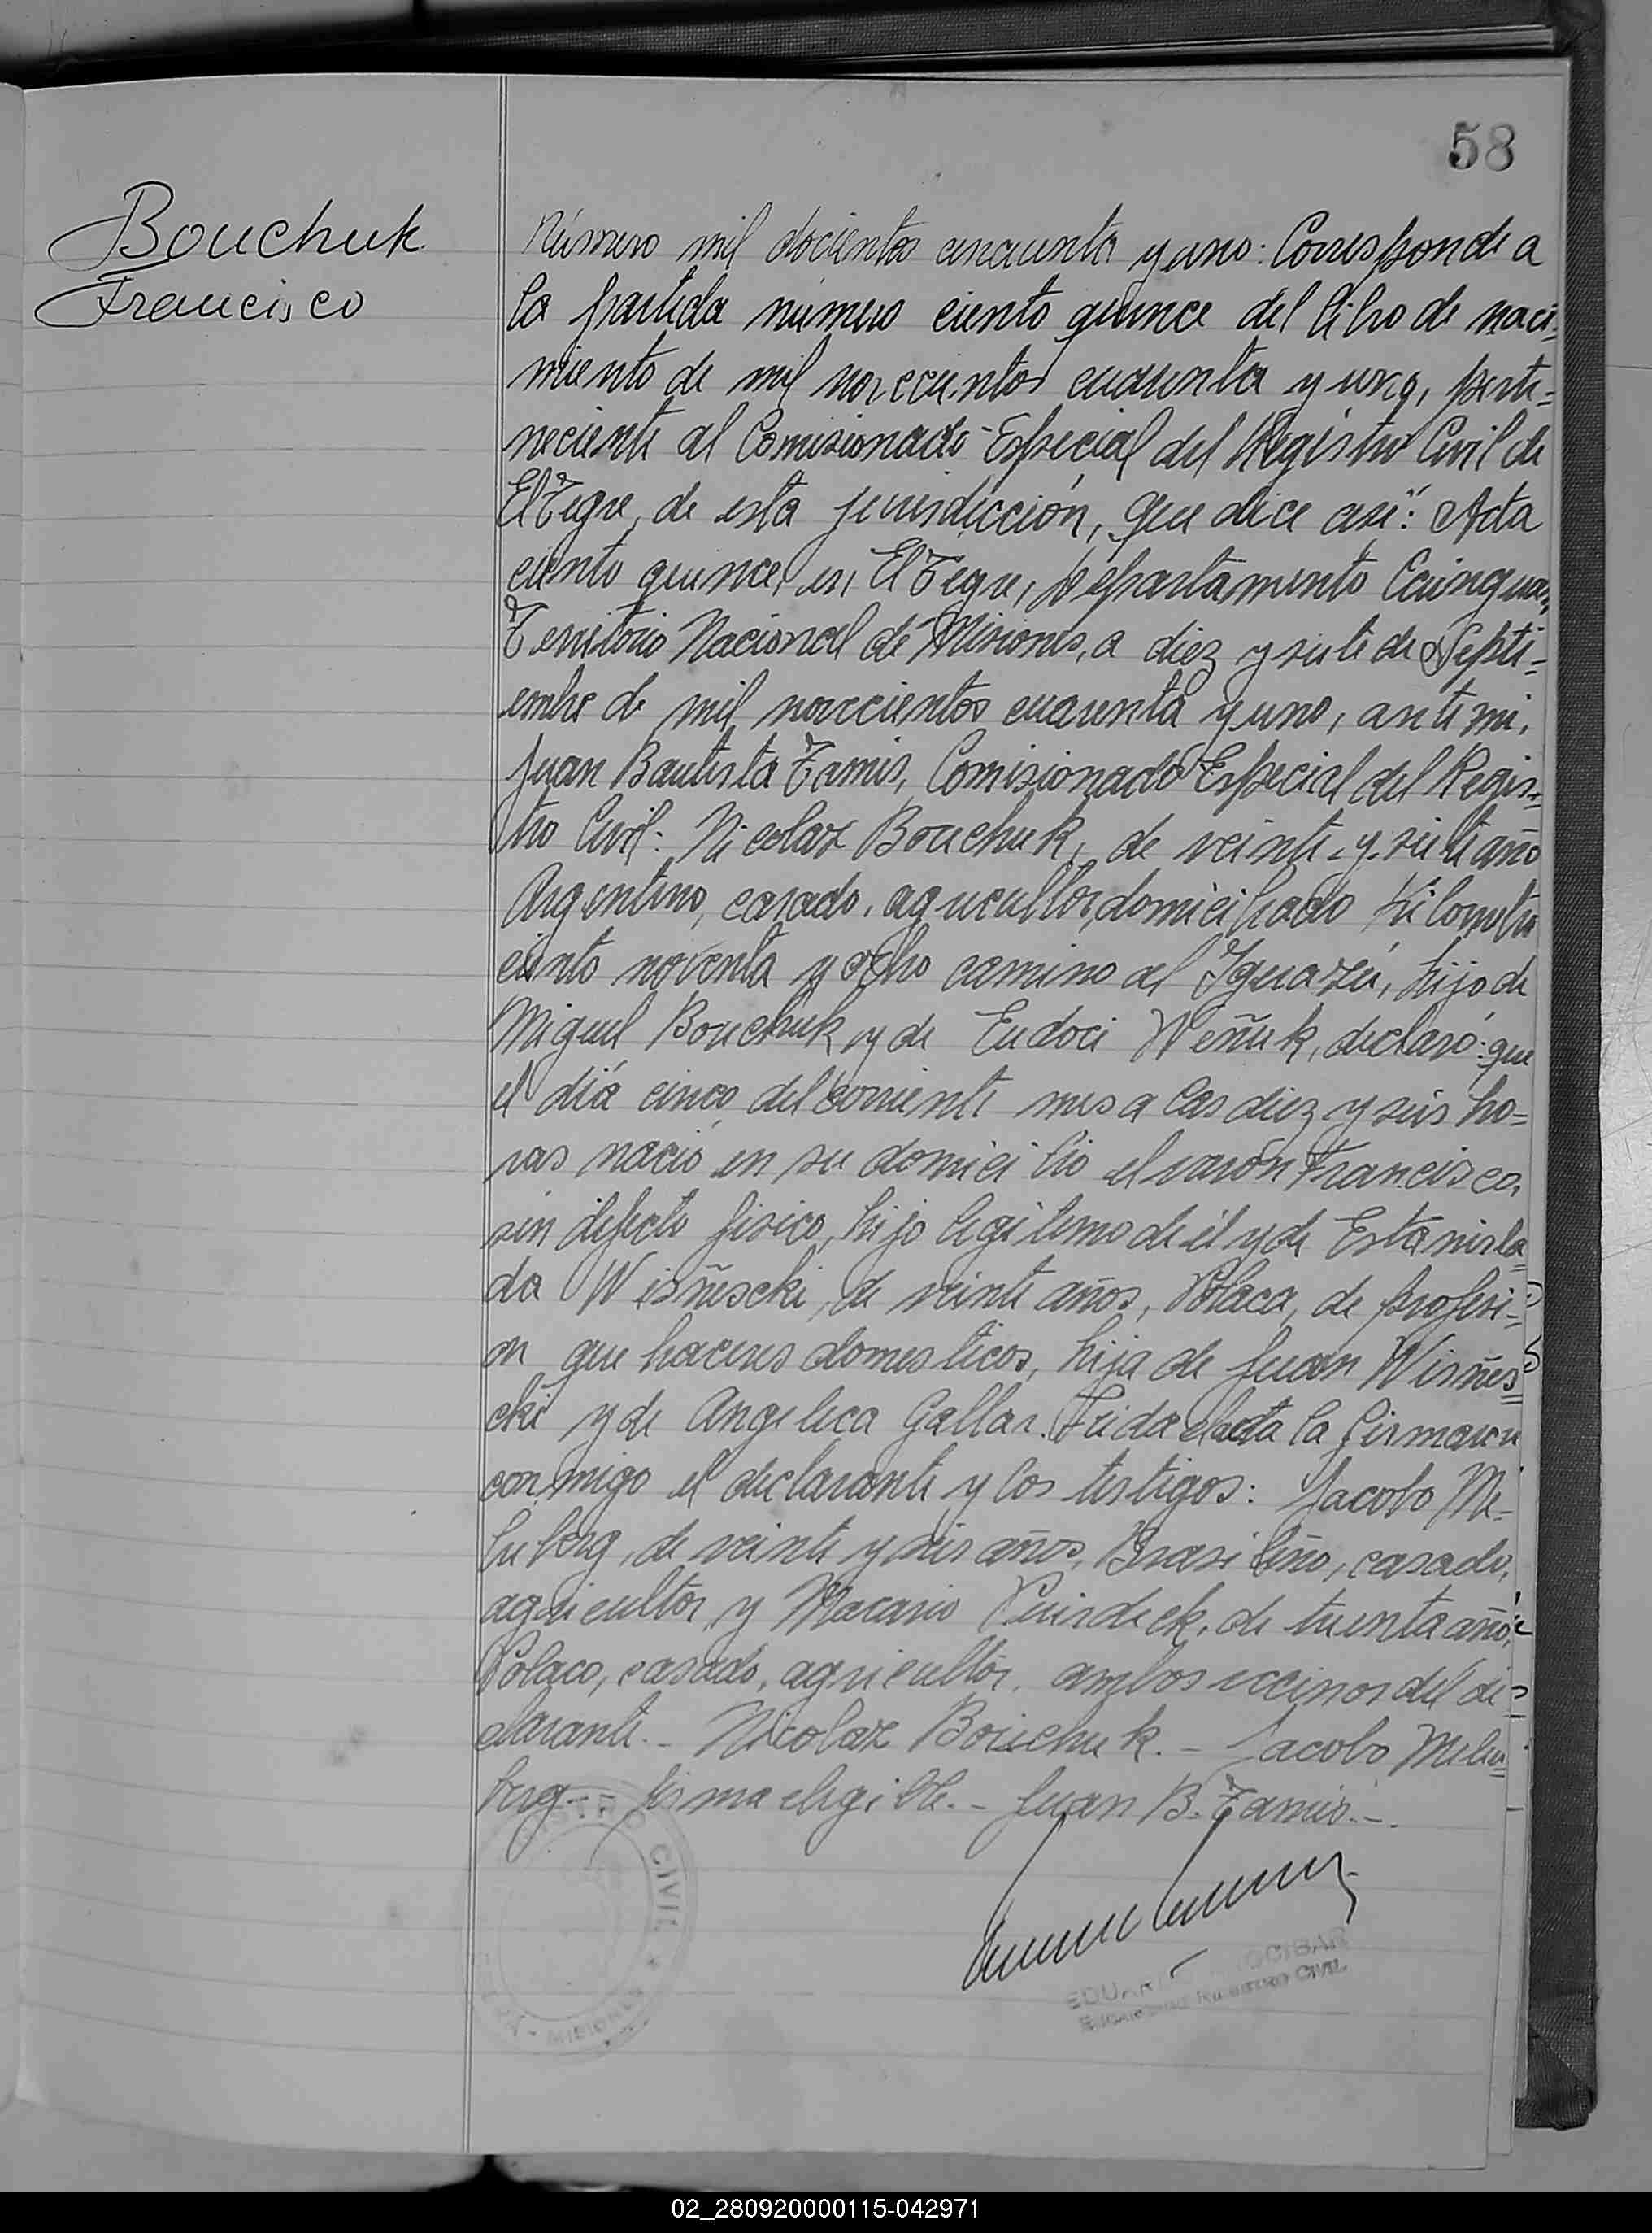 58
Bouchuk
Francisco
Número mil docientos cincuenta y uno: Corresponde a
la partida número ciento quince del libro de naci-
miento de mil novecientos cuarenta y uno, perte=
neciente al Comisionado Especial del Registro Civil de
El Tigre, de esta jurisdicción, que dice asi": Acta
ciento quince, en, El Tigre, Departamento Cainguas,
Territorio Nacional de Misiones, a diez y siete de Septi=
embre de mil novecientos cuarenta y uno, ante mi,
Juan Bautista Tamis, Comisionado Especial del Regis=
tro Civil: Nicolaz Bouchuk, de veinte y siete años
Argentino, casado, agricultor, domicilado Kilometro
ciento noventa y ocho camino al Iguazú, hijo de
Miguel Bouchuk y de Eudoci Weñuk, declaró: que
el diá cinco del corriente mes a las diez y seis ho=
ras nació en su domicilio el varón Francisco,
sin defecto fisico, hijo legitimo de él y de Estanisla
da Wisñescki, de veinte años, Polaca, de profesi=
on que haceres domesticos, hija de Juan Wisñes=
cki y de Angelica Gallar. Leida el acta la firmaron
conmigo el declarante y los testigos: Jacobo Me-
luberg, de veinte y seis años, Brasileño, casado,
agricultor y Macario, de treinta años,
Polaco, casado, agricultor, ambos vecinos del de
clarante.- Nicolaz Bouchuk.- Jacobo Melu=
berg.- firma elegible.- Juan B. Tamis.-.
CIVIL
MISIONES
REGISTRO CIVIL
02_280920000115-042971